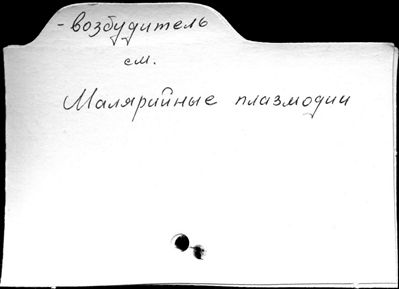 - возбудитель
см.
Малярийные плазмодии